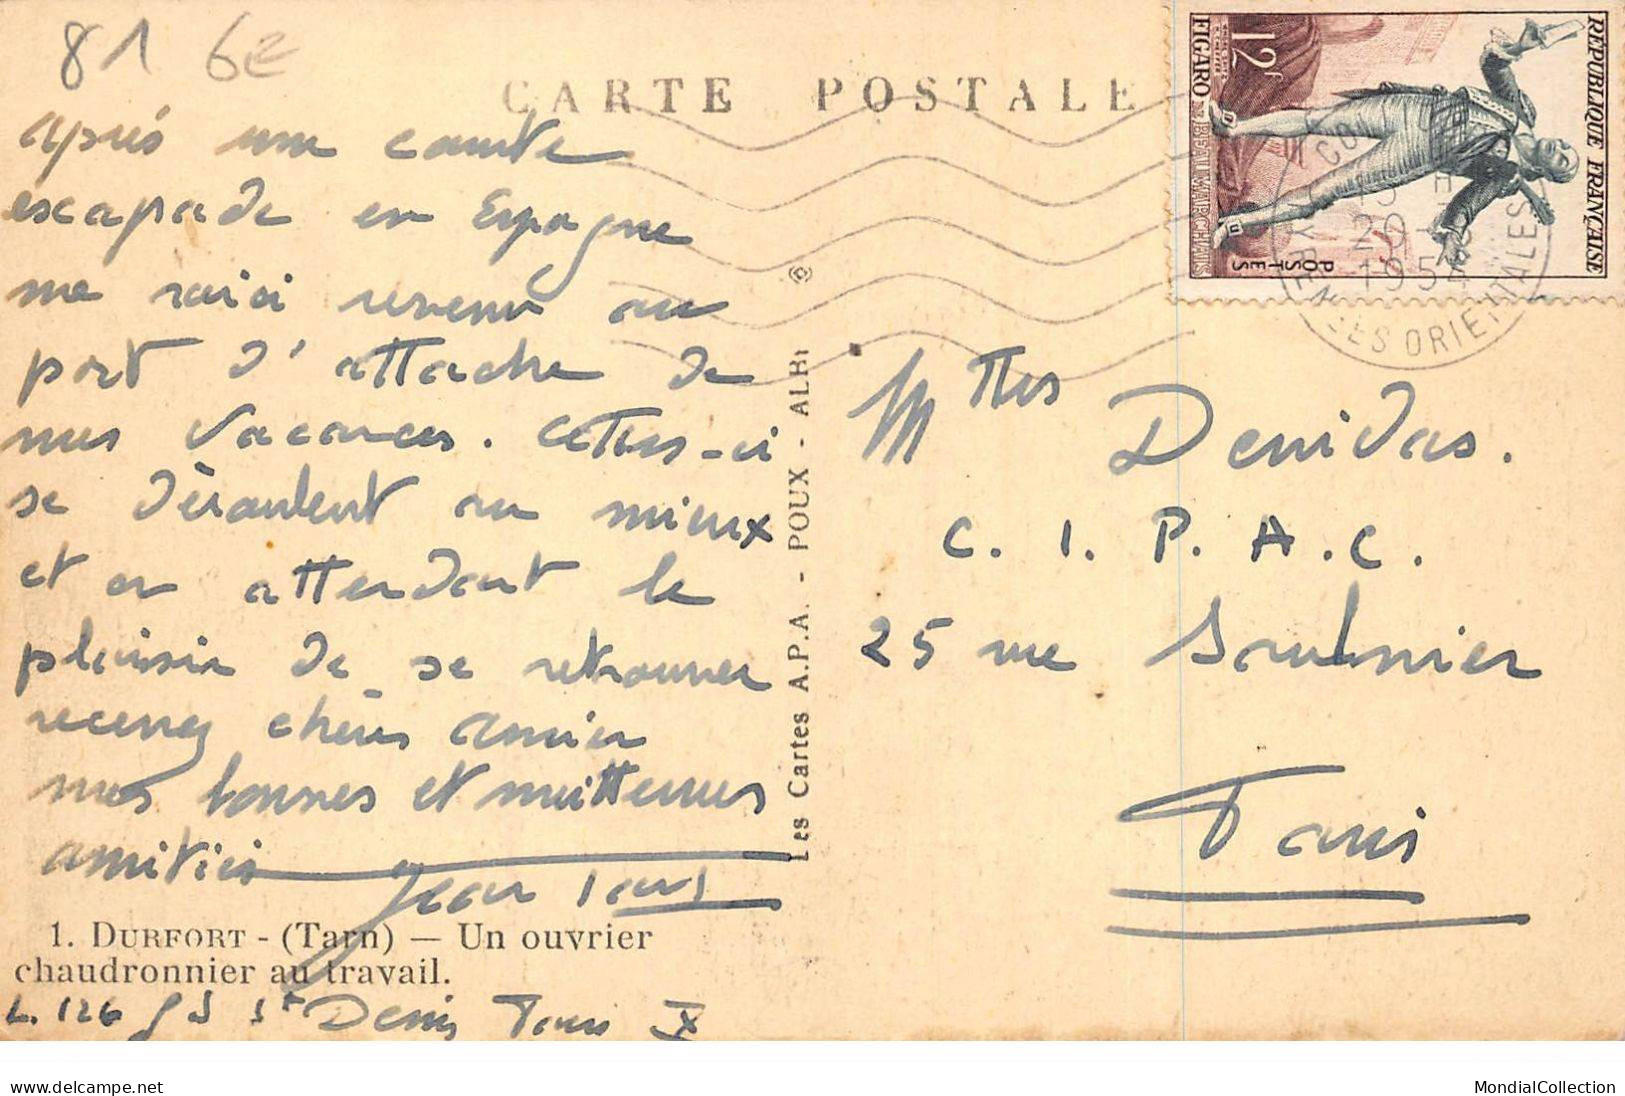 81 6E
CARTE POSTALE
après une courte
escapade en Espagne
me voici revenu au
port d'attache de
mes vacances. Celles-ci
se déroulent au mieux
et en attendant le
plaisir de se retrouver
recevez chères amies
mes bonnes et meilleures
amitiés
Jean
1. DURFORT - (Tarn) — Un ouvrier
chaudronnier au travail.
126 St Denis Paris X
Les Cartes A.P.A. - POUX - ALBI
RÉPUBLIQUE FRANÇAISE
12F
FIGARO DE BEAUMARCHAIS
POSTES
20 - 8
1954
PYRENEES ORIENTALES
Mlles Denidas.
C. I. P. A. C.
25 rue Saulnier
Paris
www.delcampe.net
MondialCollection